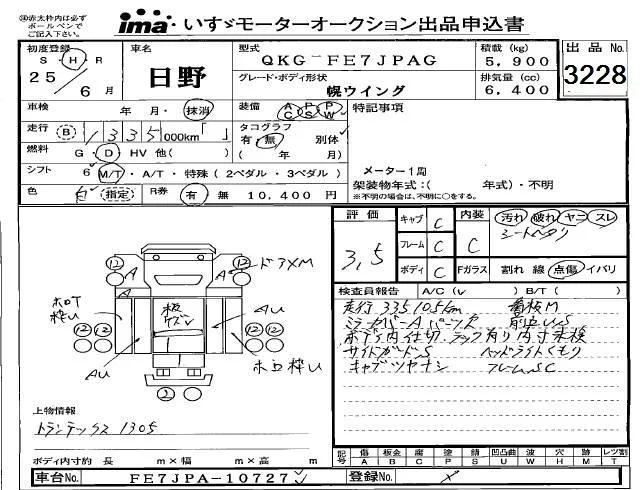 ※赤太枠内は必ず
ボールペンで
ご記入下さい。
ima いすゞモーターオークション出品申込書
初度登録
S・H・R
25/6月
車名
日野
型式
QKG-FE7JPAG
グレード・ボディ形状
幌ウイング
積載(kg)
5,900
排気量(cc)
6,400
出品No.
3228
車検 年 月・抹消
装備 AC PS PW
特記事項
走行 B 1335 000km「 」
タコグラフ
有・無 別体
( 年 月)
燃料 G・D HV 他( )
シフト 6 M/T・A/T・特殊(2ペダル・3ペダル)
メーター1周
架装物年式:( 年式)・不明
※不明の場合は、不明に○をする。
色 白 指定 R券 有 無 10,400円
評価
3,5
キャブ C
フレーム C
ボディ C
内装 C
汚れ 破れ ヤニ スレ
シートヘタリ
Fガラス 割れ 線 点傷 イバリ
検査員報告 A/C( ) B/T( )
走行 33510.5km 看板M
ミラーカバーAパーツズ
ボデー内仕切.ラック有り内寸未検
サイドガードS ヘッドライトくもり
キャブツヤナシ フレームSC
12 12
A A A
ドアXM
ボロT
枠U
板
ケズレ
AU
12 12
AU
ボロ枠U
2
上物情報
トランテックス 1305
ボディ内寸約 長 m×幅 m×高 m
記号 傷A 板金B 腐C 塗P 錆S 凹凸曲U 波W 穴H 跡M レツ割T
車台No. FE7JPA-10727
登録No.